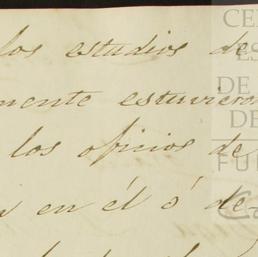 los estudios de
mente estuviero
los oficios de
en él ó de
CE
ES
DE
DE
FU